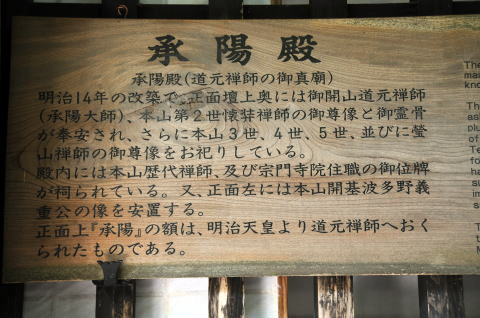 承陽殿
承陽殿(道元禅師の御真廟)
明治14年の改築で、正面壇上奥には御開山道元禅師
(承陽大師)、本山第2世懐弉禅師の御尊像と御霊骨
が奉安され、さらに本山3世、4世、5世、並びに瑩
山禅師の御尊像をお祀りしている。
殿内には本山歴代禅師、及び宗門寺院住職の御位牌
が祠られている。又、正面左には本山開基波多野義
重公の像を安置する。
正面上『承陽』の額は、明治天皇より道元禅師へおく
られたものである。
The
mai
kno
The
as
plu
of
Te
fo
ha
su
im
s
T
t
M